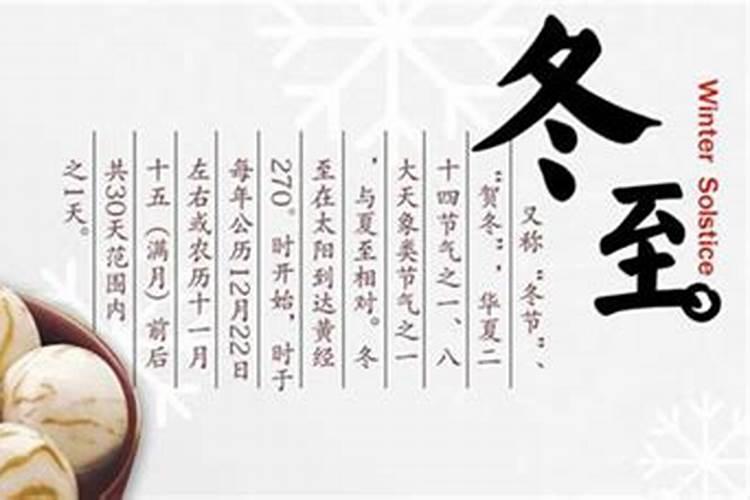 冬至。
Winter Solstice
又称“冬节”、
“贺冬”，华夏二
十四节气之一、八
大天象类节气之一
，与夏至相对。冬
至在太阳到达黄经
270°时开始，时于
每年公历12月22日
左右或农历十一月
十五（满月）前后
共30天范围内
之1天。